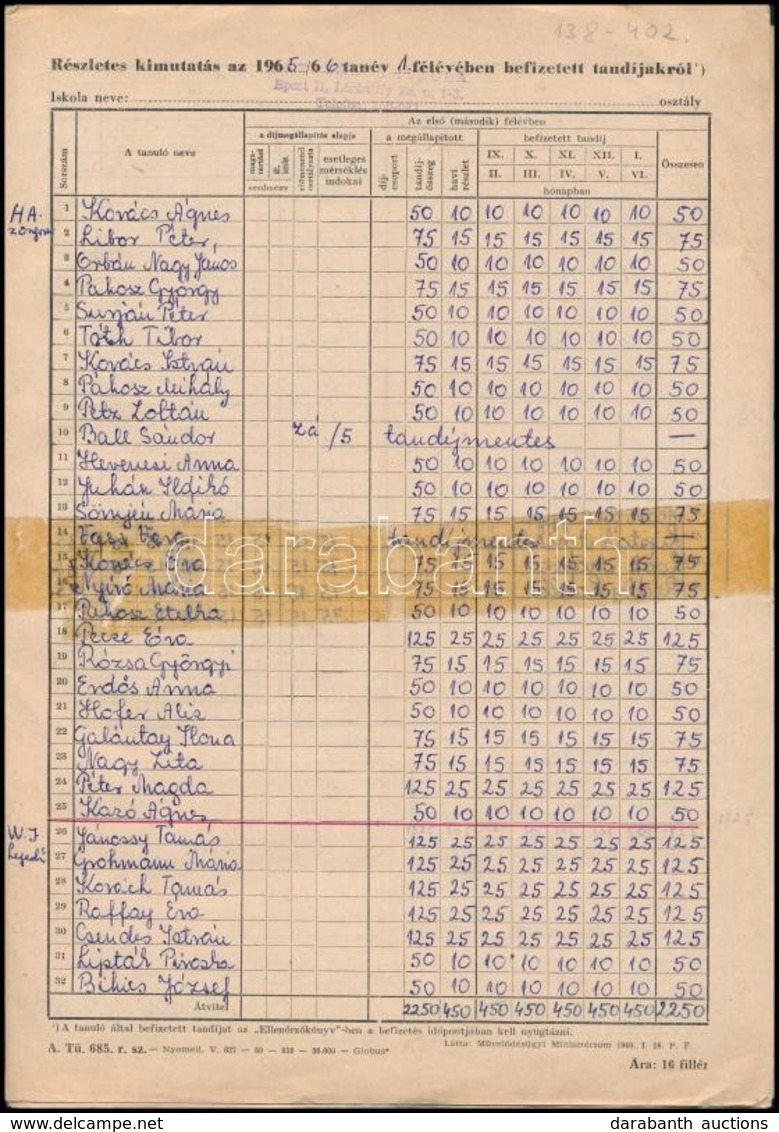 138-402.
Részletes kimutatás az 1965/66 tanév 1. félévében befizetett tandíjakról¹)
Iskola neve: osztály
Sorszám A tanuló neve Az első (második) félévben
a díjmegállapítás alapja a megállapított befizetett tandíj Összesen
esetleges mérséklés indokai díj-csoport tandíj-összeg havi részlet IX. X. XI. XII. I.
eredmény II. III. IV. V. VI.
hónapban
HA. 1 Kovács Ágnes 50 10 10 10 10 10 10 50
zongora 2 Libor Péter, 75 15 15 15 15 15 15 75
3 Orbán Nagy János 50 10 10 10 10 10 10 50
4 Pakosz György 75 15 15 15 15 15 15 75
5 Surján Péter 50 10 10 10 10 10 10 50
6 Tóth Tibor 50 10 10 10 10 10 10 50
7 Kovács István 75 15 15 15 15 15 15 75
8 Pákosz Mihály 50 10 10 10 10 10 10 50
9 Petz Zoltán 50 10 10 10 10 10 10 50
10 Ball Sándor zá /5 tandíjmentes —
11 Hevenesi Anna 50 10 10 10 10 10 10 50
12 Juhán Ildikó 50 10 10 10 10 10 10 50
13 Sömjén Mária 75 15 15 15 15 15 15 75
14 Éva tandíjmentes —
15 Kovács Éva 75 15 15 15 15 15 15 75
16 Nyírő Mária 75 15 15 15 15 15 15 75
17 Pakosz Etelka 50 10 10 10 10 10 10 50
18 Pecze Éva 125 25 25 25 25 25 25 125
19 Rózsa Györgyi 75 15 15 15 15 15 15 75
20 Erdős Anna 50 10 10 10 10 10 10 50
21 Hofer Aliz 50 10 10 10 10 10 10 50
22 Galántay Ilona 75 15 15 15 15 15 15 75
23 Nagy Zita 75 15 15 15 15 15 15 75
24 Péter Magda 125 25 25 25 25 25 25 125
25 Kazó Ágnes 50 10 10 10 10 10 10 50
W.J 26 Jánossy Tamás 125 25 25 25 25 25 25 125
hegedű 27 Grohmann Mária 125 25 25 25 25 25 25 125
28 Kovách Tamás 125 25 25 25 25 25 25 125
29 Raffay Éva 125 25 25 25 25 25 25 125
30 Csendes István 125 25 25 25 25 25 25 125
31 Lipták Piroska 50 10 10 10 10 10 10 50
32 Bihics József 50 10 10 10 10 10 10 50
Átvitel 2250 450 450 450 450 450 450 2250
¹) A tanuló által befizetett tandíjat az „Ellenőrzőkönyv"-ben a befizetés időpontjában kell nyugtázni.
A. Tü. 685. r. sz. — Nyomell. V. 627 — 60 — — 36.000 — Globus* Látta: Művelődésügyi Minisztérium 1960. I. 16. P. F.
Ára: 16 fillér
darabanth
darabanth auctions
www.darabanth.com